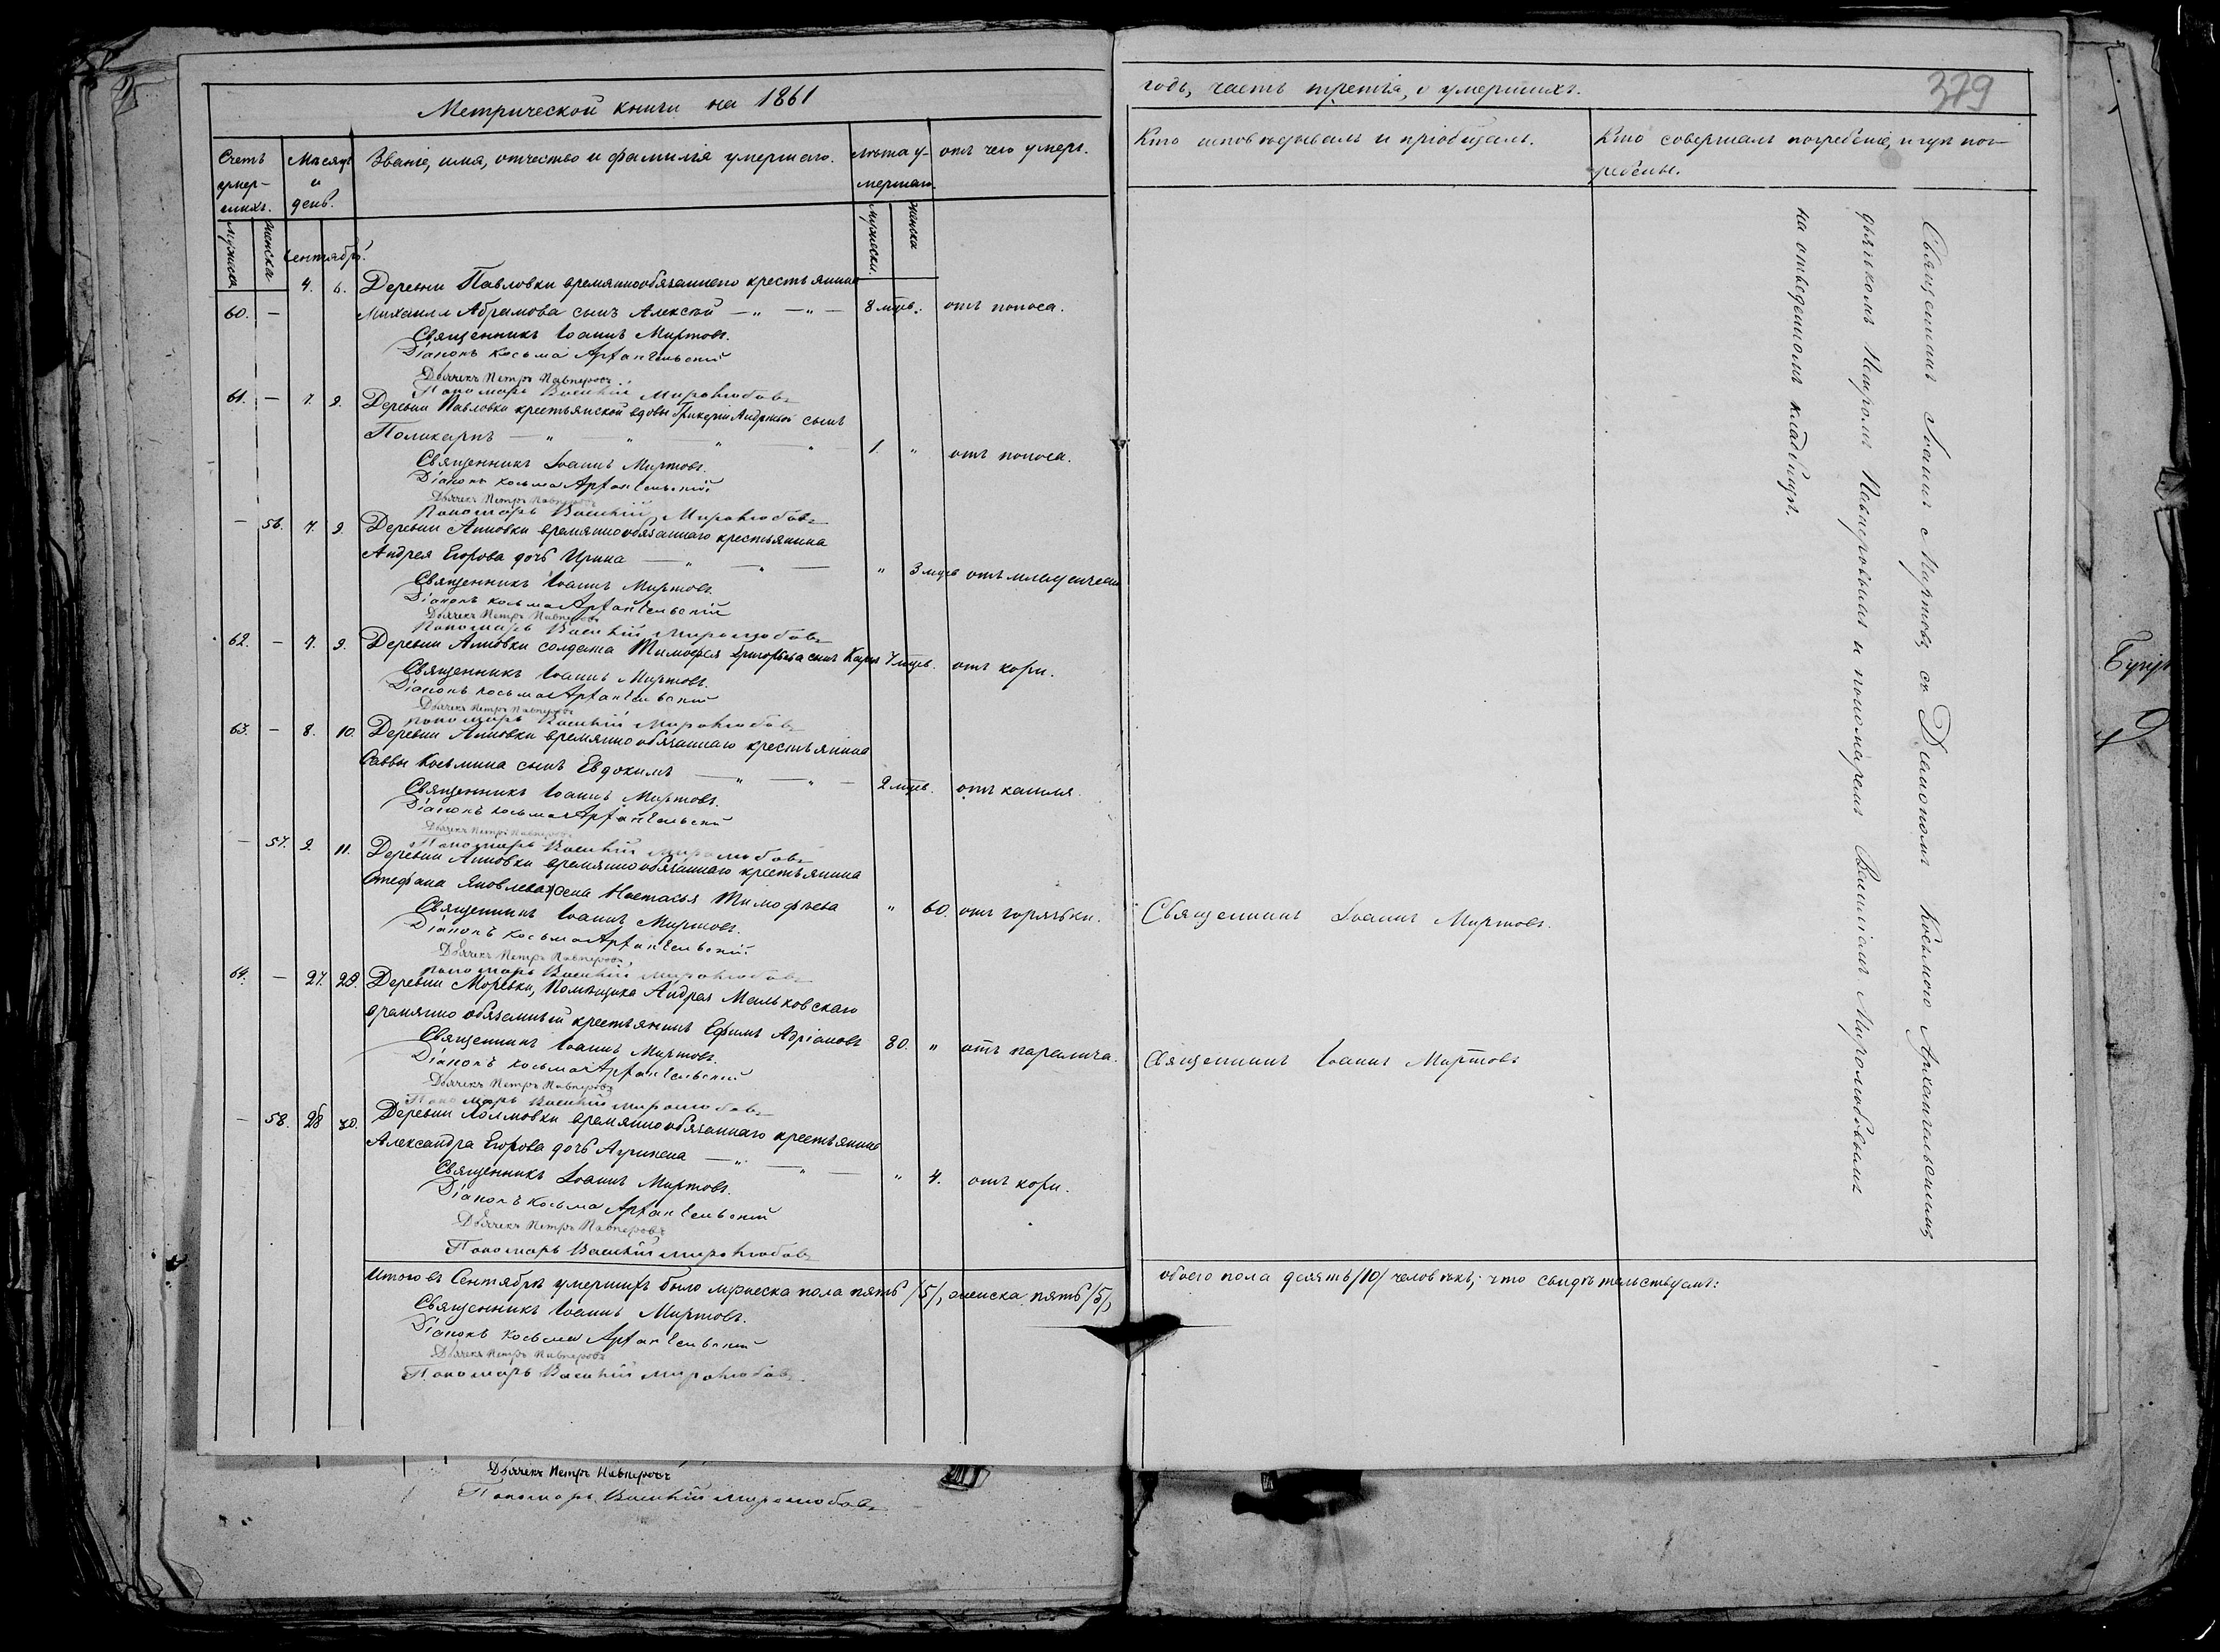 Метрической книги на 1861
годъ, часть третія, о умершихъ.
379
Счетъ умер-шихъ.
Мѣсяцъ и день.
Званіе, имя, отчество и фамилія умершаго.
Лѣта у-мершаго.
отъ чего умеръ.
Кто исповѣдывалъ и пріобщалъ.
Кто совершалъ погребеніе, и гдѣ пог-ребены.
Мужеска
Женска
Сентябрь.
Мужески.
Женска
4. 6. Деревни Павловки временнообязаннаго крестьянина
60. — Михаила Абрамова сынъ Алексѣй — „ — „ — 8 мцев. отъ поноса.
Священникъ Іоаннъ Миртовъ.
Діаконъ Косьма Архангельскій
Дьячекъ Петръ Павперовъ
Пономарь Василій Миролюбовъ
61. — 7. 9. Деревни Павловки крестьянской вдовы Гликеріи Андреевой сынъ
Поликарпъ — „ — „ — „ — „ — 1. „ отъ поноса.
Священникъ Іоаннъ Миртовъ.
Діаконъ Косьма Архангельскій
Дьячекъ Петръ Павперовъ
Пономарь Василій Миролюбовъ
— 56. 7. 9. Деревни Анновки временнообязаннаго крестьянина
Андрея Егорова дочь Ирина — „ — „ — „ 3 мцев отъ младенческ
Священникъ Іоаннъ Миртовъ.
Діаконъ Косьма Архангельскій
Дьячекъ Петръ Павперовъ
Пономарь Василій Миролюбовъ
62. — 7. 9. Деревни Анновки солдата Тимофея Григорьева сынъ Карпъ 4 мцев. отъ кори.
Священникъ Іоаннъ Миртовъ.
Діаконъ Косьма Архангельскій
Дьячекъ Петръ Павперовъ
Пономарь Василій Миролюбовъ
63. — 8. 10. Деревни Анновки временнообязаннаго крестьянина
Саввы Косьмина сынъ Евдокимъ — „ — „ — 2 мцев. отъ кашля.
Священникъ Іоаннъ Миртовъ.
Діаконъ Косьма Архангельскій
Дьячекъ Петръ Павперовъ
Пономарь Василій Миролюбовъ
— 57. 9. 11. Деревни Анновки временнообязаннаго крестьянина
Стефана Яковлева жена Настасья Тимофѣева „ 60. отъ горячки. Священникъ Іоаннъ Миртовъ.
Священникъ Іоаннъ Миртовъ.
Діаконъ Косьма Архангельскій
Дьячекъ Петръ Павперовъ
Пономарь Василій Миролюбовъ
64. — 27. 28. Деревни Моревки, Помѣщика Андрея Мальковскаго
временно обязанный крестьянинъ Ефимъ Адріановъ 80. „ отъ паралича. Священникъ Іоаннъ Миртовъ
Священникъ Іоаннъ Миртовъ.
Діаконъ Косьма Архангельскій
Дьячекъ Петръ Павперовъ
Пономарь Василій Миролюбовъ
— 58. 28 30. Деревни Холмовки временнообязаннаго крестьянина
Александра Егорова дочь Агрипена — „ — „ — „ 4. отъ кори.
Священникъ Іоаннъ Миртовъ.
Діаконъ Косьма Архангельскій
Дьячекъ Петръ Павперовъ
Пономарь Василій Миролюбовъ
Священникъ Іоаннъ Миртовъ, съ Діакономъ Косьмою Архангельскимъ,
дьячкомъ Петромъ Павперовымъ и пономаремъ Василіемъ Миролюбовымъ
на отведенномъ кладбищѣ.
Итого въ Сентябрѣ умершихъ было мужеска пола пять /5/, женска пять /5/, обоего пола десять /10/ человѣкъ; что свидѣтельствуемъ:
Священникъ Іоаннъ Миртовъ.
Діаконъ Косьма Архангельскій
Дьячекъ Петръ Павперовъ
Пономарь Василій Миролюбовъ
Дьячекъ Петръ Павперовъ
Пономарь Василій Миролюбовъ